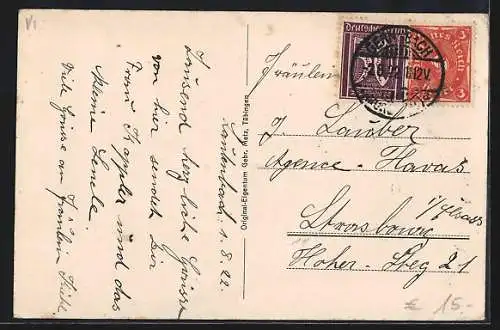 V1
Lautenbach, 1.8.22
Tausend herzliche Grüsse
von hier sendet Dir
Frau Keppler und das
kleine Lenele.
Viele Grüsse an Fräulein
Original-Eigentum Gebr. Metz, Tübingen
Deutsches Reich
3 3
Fräulein
J. Lauber
Agence-Havas
Strasbourg
i/Elsass
Hoher-Steg 21
€ 15.-